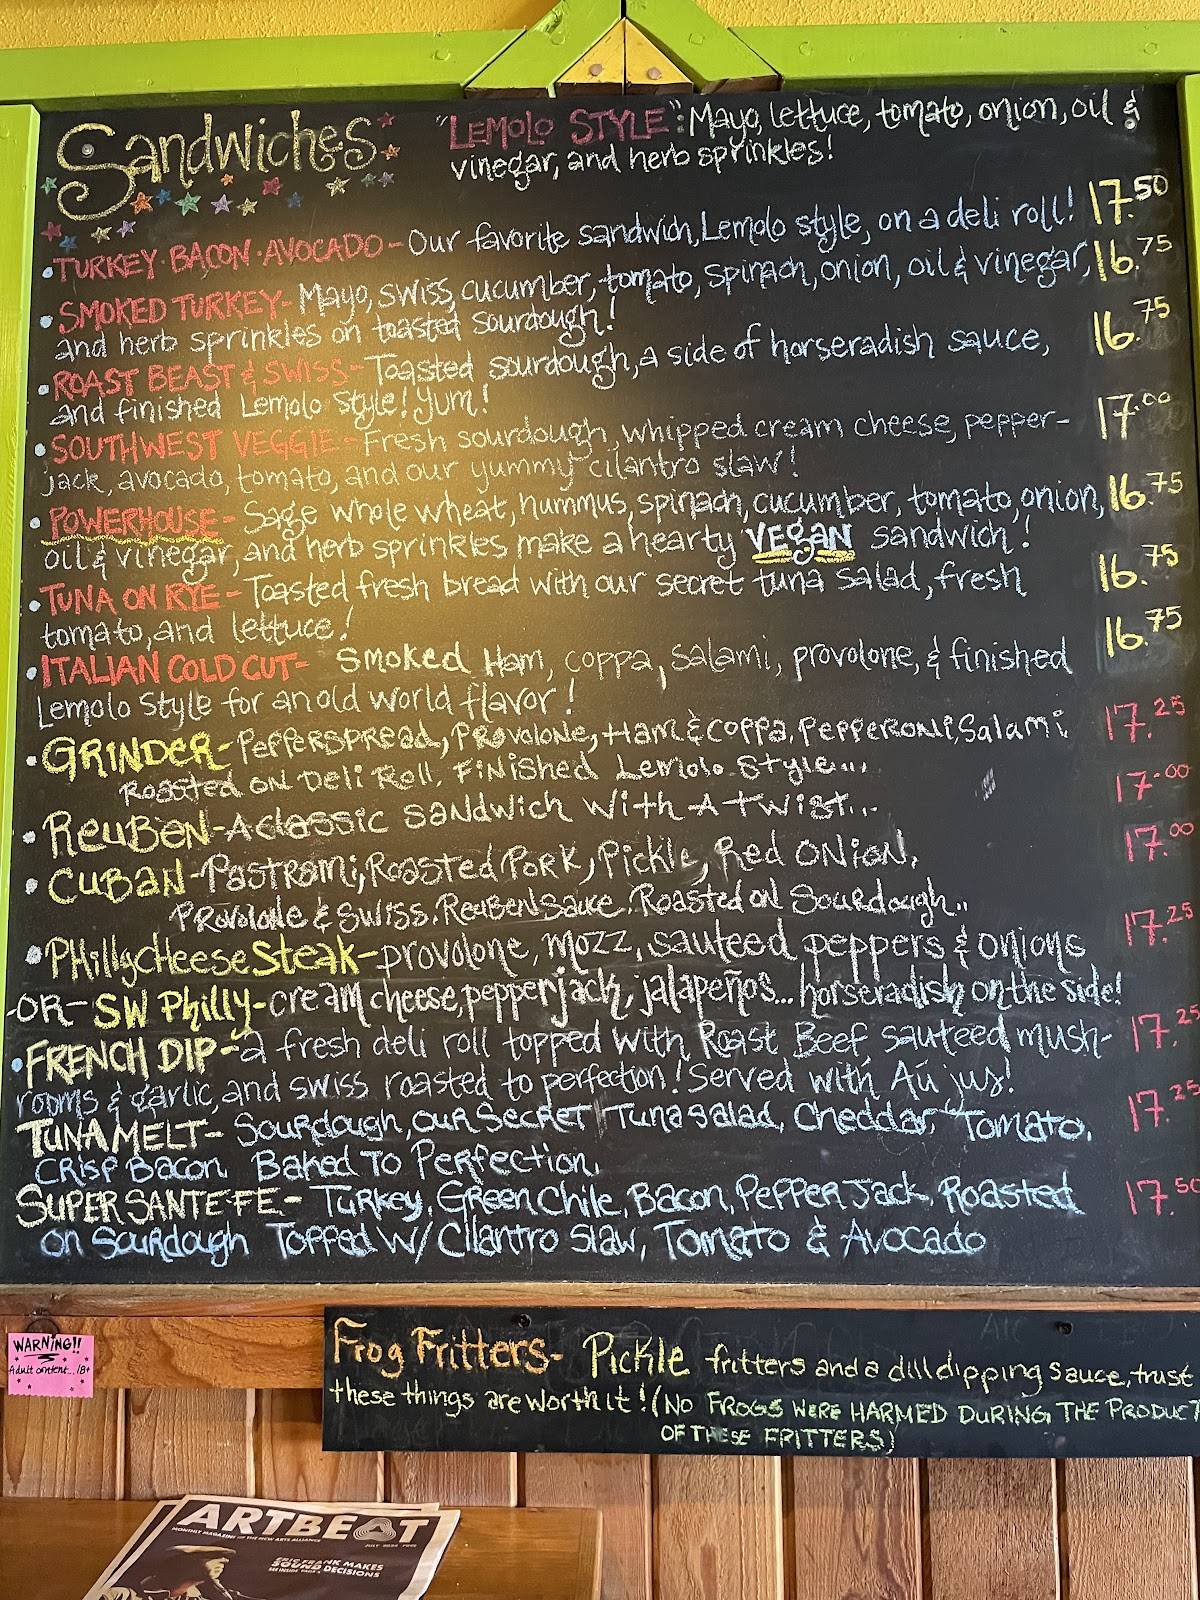 Sandwiches
"LEMOLO STYLE": Mayo, lettuce, tomato, onion, oil &
vinegar, and herb sprinkles!
• TURKEY·BACON·AVOCADO- Our favorite sandwich, Lemolo style, on a deli roll! 17.50
• SMOKED TURKEY- Mayo, swiss, cucumber, tomato, spinach, onion, oil & vinegar, 16.75
and herb sprinkles on toasted sourdough!
• ROAST BEAST & SWISS- Toasted sourdough, a side of horseradish sauce, 16.75
and finished Lemolo style! Yum!
• SOUTHWEST VEGGIE- Fresh sourdough, whipped cream cheese, pepper- 17.00
jack, avocado, tomato, and our yummy cilantro slaw!
• POWERHOUSE- Sage whole wheat, hummus, spinach, cucumber, tomato, onion, 16.75
oil & vinegar, and herb sprinkles make a hearty VEGAN sandwich!
• TUNA ON RYE- Toasted fresh bread with our secret tuna salad, fresh 16.75
tomato, and lettuce!
• ITALIAN COLD CUT- Smoked Ham, coppa, salami, provolone, & finished 16.75
Lemolo Style for an old world flavor!
• GRINDER- PEPPERSPREAD, PROVOLONE, HAM & COPPA, PEPPERONI, Salami 17.25
ROASTED ON Deli Roll, FINISHED Lemolo Style...
• REUBEN- A classic sandwich with A twist... 17.00
• CUBAN- Pastrami, Roasted Pork, Pickle, Red ONION, 17.00
PROVOLONE & SWISS, REUBEN Sauce, Roasted on Sourdough..
• PHilly CHeese Steak- provolone, mozz, sauteed peppers & onions 17.25
-OR- SW Philly- cream cheese, pepperjack, jalapeños... horseradish on the side!
• FRENCH DIP- a fresh deli roll topped with Roast Beef, sauteed mush- 17.25
rooms & garlic, and swiss roasted to perfection! Served with Aú jus!
TUNA MELT- Sourdough, our Secret Tuna salad, Cheddar, Tomato, 17.25
CRISP BACON, BAKED TO PERFECTION,
SUPER SANTE FE- TURKEY, GREEN Chile, Bacon, PePPER JACK, Roasted 17.50
on Sourdough Topped W/ Cilantro Slaw, Tomato & Avocado
WARNING!!
Adult content... 18+
Frog Fritters- Pickle fritters and a dill dipping sauce, trust
these things are worth it! (NO FROGS WERE HARMED DURING THE PRODUCT
OF THESE FRITTERS)
ARTBEAT
JULY 2024 FREE
ERIC FRANK MAKES
SOUND DECISIONS